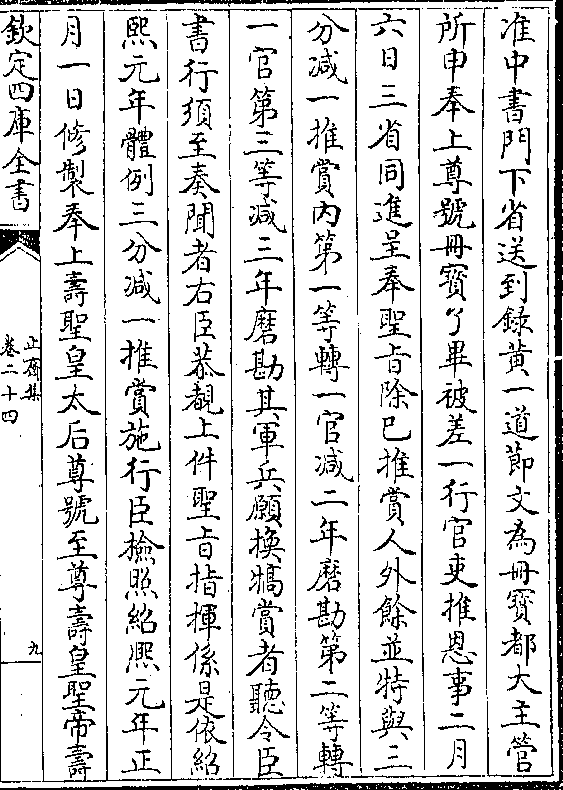 准中書門下省送到録黄一道節文為冊寳都大主管
所申奉上尊號冊寳了畢被差一行官吏推恩事二月
六日三省同進呈奉聖㫖除已推賞人外餘並特與三
分减一推賞内第一等轉一官减二年磨勘第二等轉
一官第三等减三年磨勘其軍兵願換犒賞者聽令臣
書行須至奏聞者右臣恭覩上件聖㫖指揮係是依紹
熙元年體例三分减一推賞施行臣檢照紹熙元年正
月一日修製奉上壽聖皇太后尊號至尊壽皇聖帝壽
欽定四庫全書
止齋集
卷二十四
九